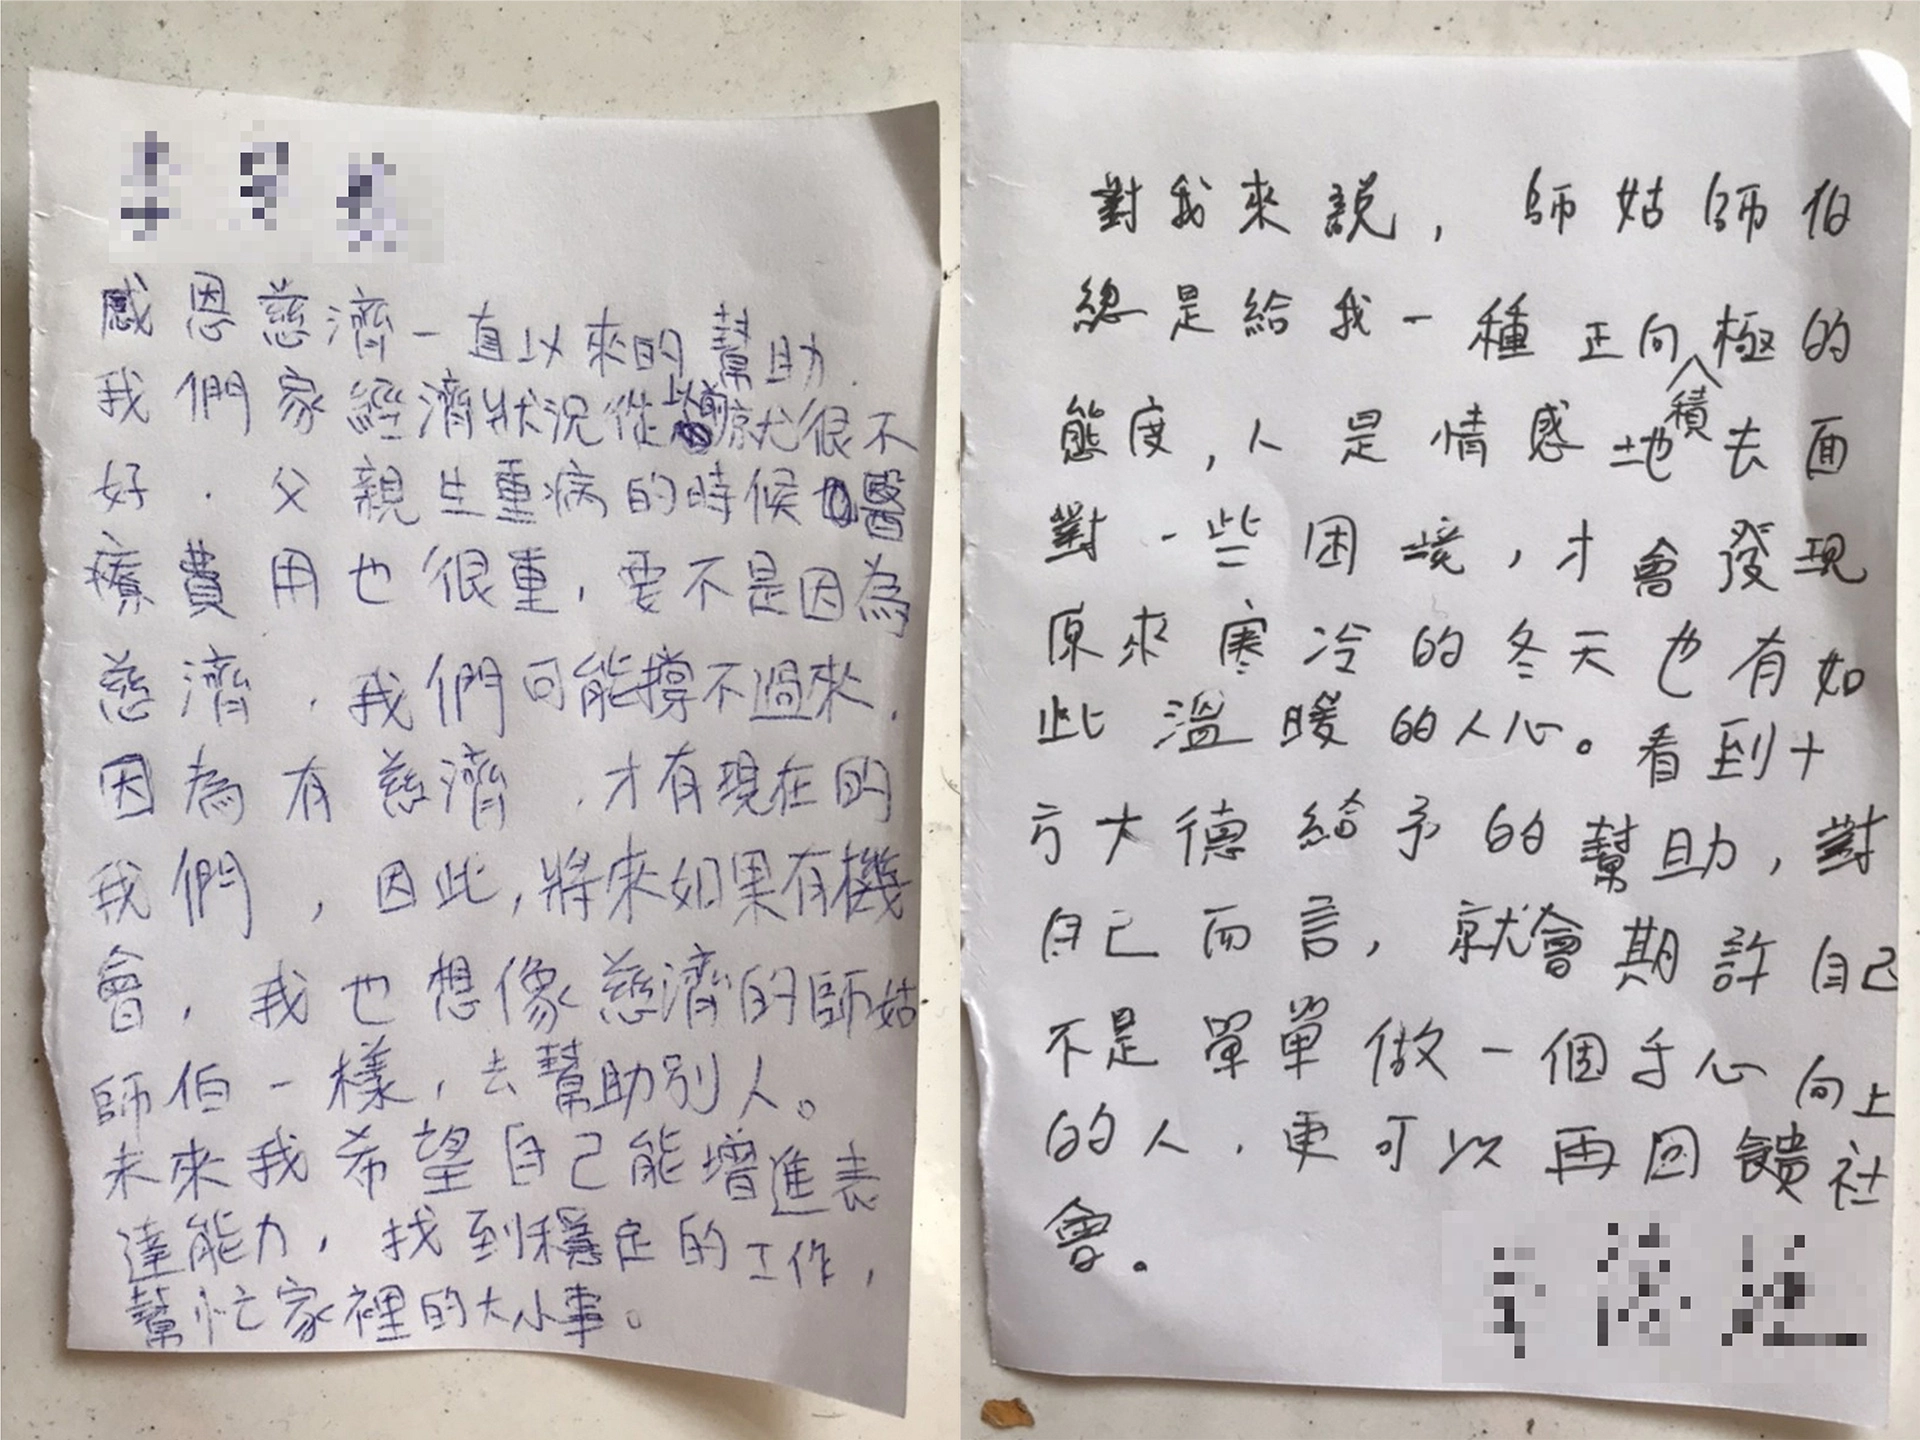 感恩慈濟一直以來的幫助.
我們家經濟狀況從以前就很不
好.父親生重病的時候醫
療費用也很重,要不是因為
慈濟,我們可能撐不過來.
因為有慈濟,才有現在的
我們,因此,將來如果有機
會,我也想像慈濟的師姑
師伯一樣,去幫助別人。
未來我希望自己能增進表
達能力,找到穩定的工作,
幫忙家裡的大小事。
對我來說,師姑師伯
總是給我一種正向積極的
態度,人是情感地去面
對一些困境,才會發現
原來寒冷的冬天也有如
此溫暖的人心。看到十
方大德給予的幫助,對
自己而言,就會期許自己
不是單單做一個手心向上
的人.更可以再回饋社
會。